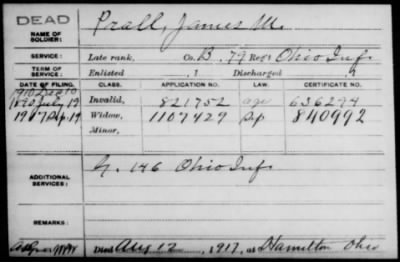 DEAD
NAME OF SOLDIER: Prall, James M.
SERVICE: Late rank, Co. B, 79 Reg't Ohio Inf.
TERM OF SERVICE: Enlisted , 1 Discharged , 1
DATE OF FILING. CLASS. APPLICATION NO. LAW. CERTIFICATE NO.
July 19 Invalid, 821752 age 636294
1917 Sep. 19 Widow, 1107429 Sp 840992
Minor,
ADDITIONAL SERVICES: G. 146 Ohio Inf.
REMARKS:
Died Aug 12, 1917, at Hamilton Ohio